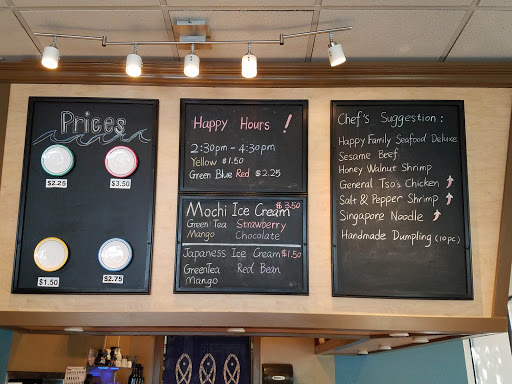 Prices
$2.25
$3.50
$1.50
$2.75
Happy Hours !
2:30pm - 4:30pm
Yellow $1.50
Green Blue Red $2.25
Mochi Ice Cream $3.50
Green Tea Strawberry
Mango Chocolate
Japanese Ice Cream $1.50
GreenTea Red Bean
Mango
Chef's Suggestion:
Happy Family Seafood Deluxe
Sesame Beef
Honey Walnut Shrimp
General Tso's Chicken
Salt & Pepper Shrimp
Singapore Noodle
Handmade Dumpling (10pc)